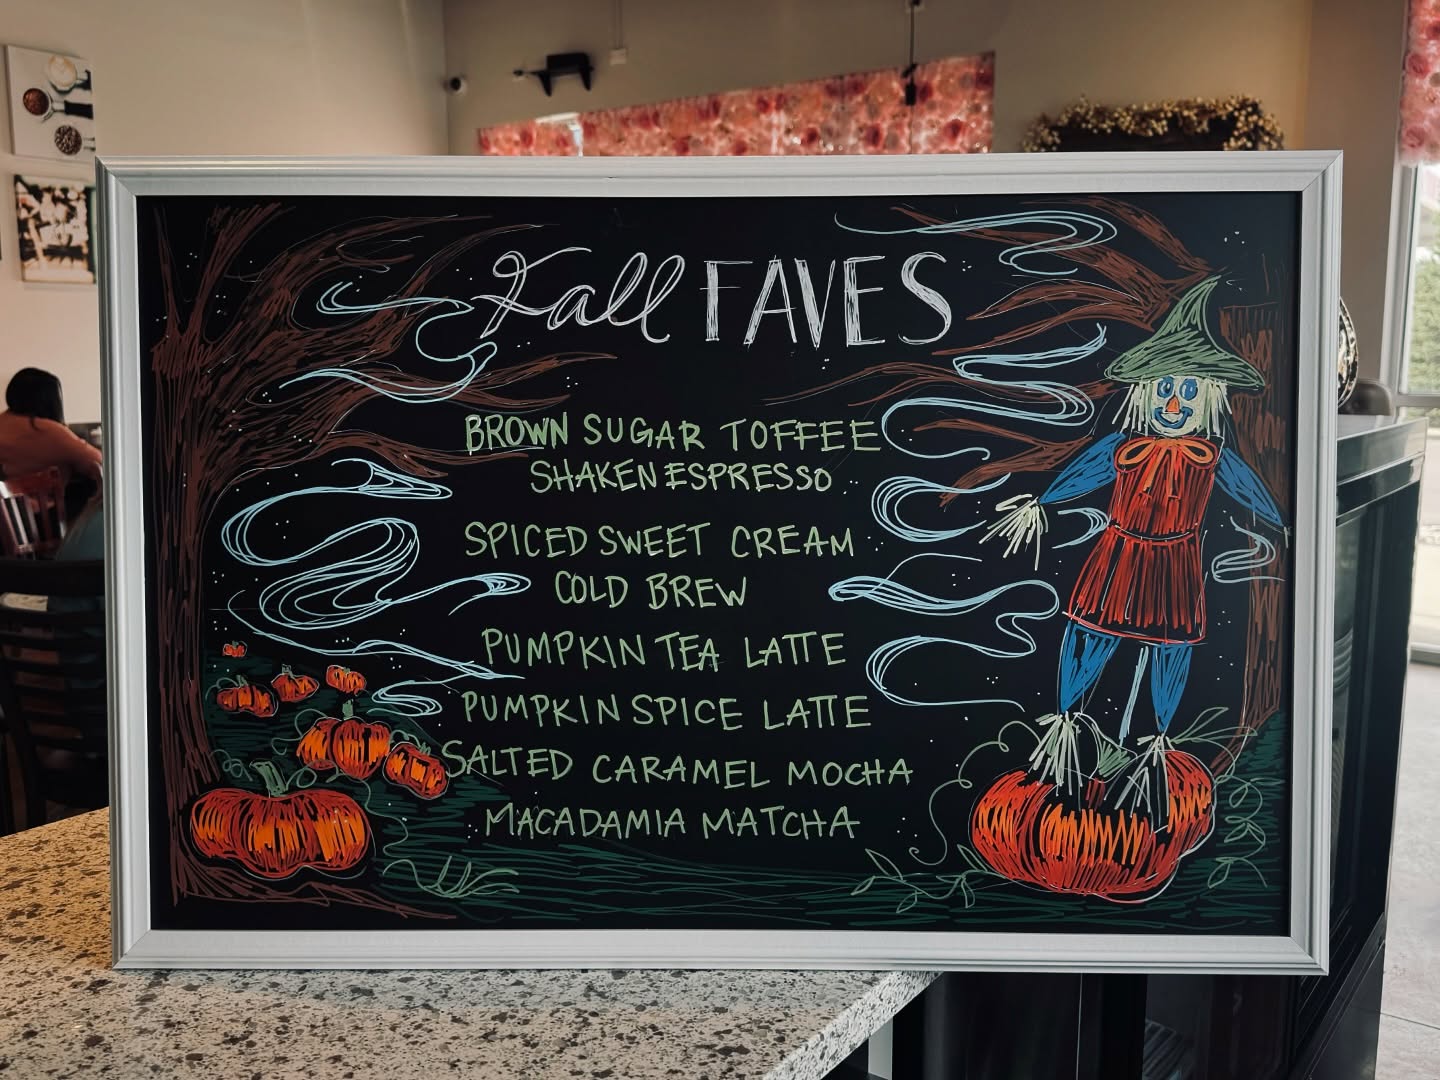 Fall FAVES
BROWN SUGAR TOFFEE
SHAKEN ESPRESSO
SPICED SWEET CREAM
COLD BREW
PUMPKIN TEA LATTE
PUMPKIN SPICE LATTE
SALTED CARAMEL MOCHA
MACADAMIA MATCHA